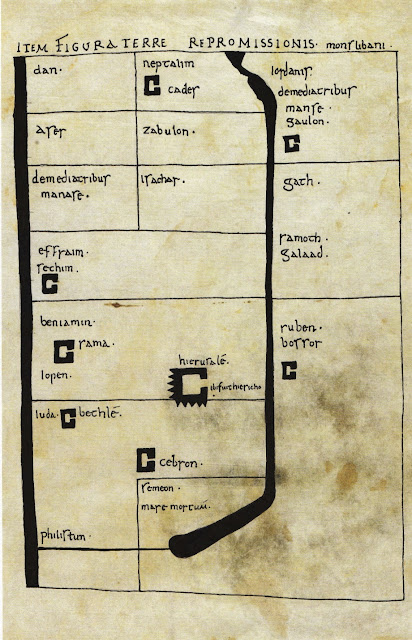 ITEM FIGURA TERRE REPROMISSIONIS · mons libani ·
dan ·
neptalim
cader
Iordanis
demediatribus
manse ·
gaulon ·
aser
zabulon ·
demediatribus
manase ·
Isachar ·
gath ·
effraim ·
sechim ·
ramoth ·
galaad ·
beniamin ·
rama ·
Iopen ·
hierusalē ·
ibifuithiericho
ruben ·
Iuda ·
bethlē ·
cebron ·
semeon ·
mare mortuū ·
philistiim ·